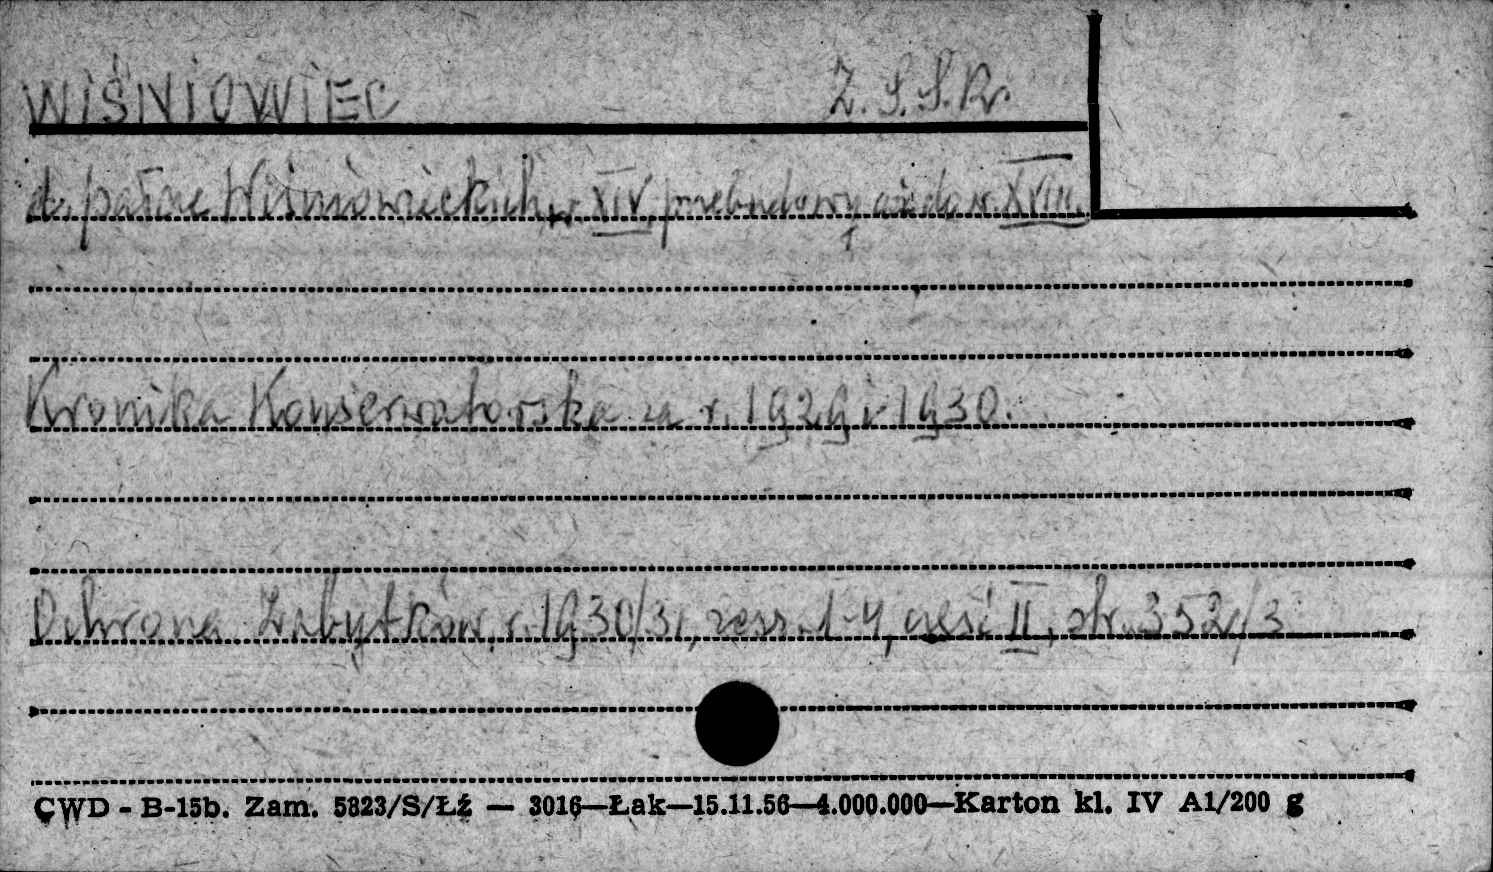 WIŚNIOWIEC Z.S.S.R.
d. pałac Wiśniowieckich w. XIV, przebudowy aż do w. XVIII.
Kronika Konserwatorska za r. 1929 i 1930.
Ochrona Zabytków, r. 1930/31, zesz. 1-4, część II, str. 352/3
CWD - B-15b. Zam. 5823/S/Łź — 3016—Łak—15.11.56—4.000.000—Karton kl. IV A1/200 g